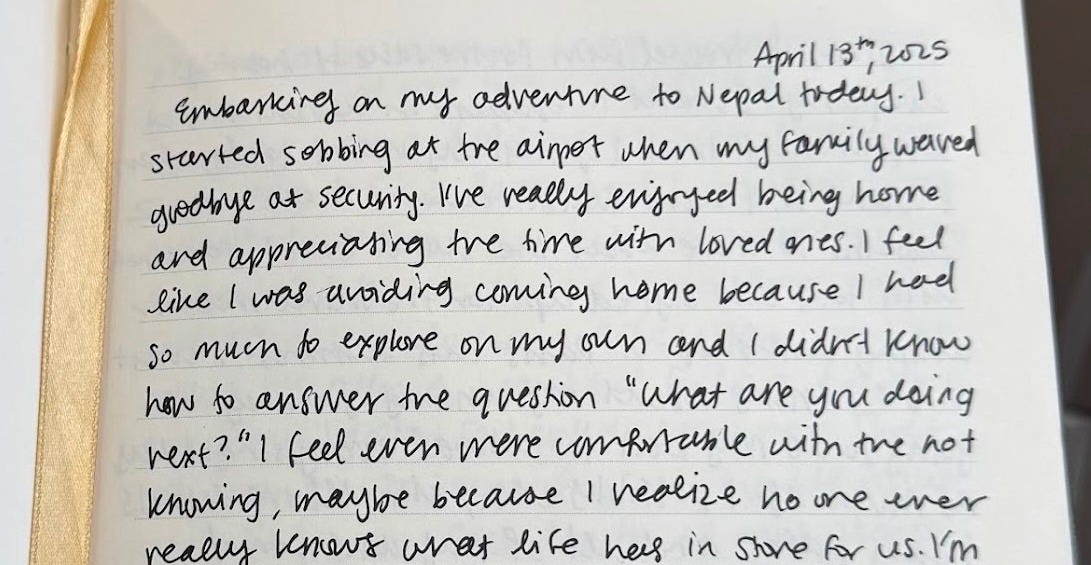 April 13th, 2025
Embarking on my adventure to Nepal today. I
started sobbing at the airport when my family waved
goodbye at security. I've really enjoyed being home
and appreciating the time with loved ones. I feel
like I was avoiding coming home because I had
so much to explore on my own and I didn't know
how to answer the question "what are you doing
next?" I feel even more comfortable with the not
knowing, maybe because I realize no one ever
really knows what life has in store for us. I'm